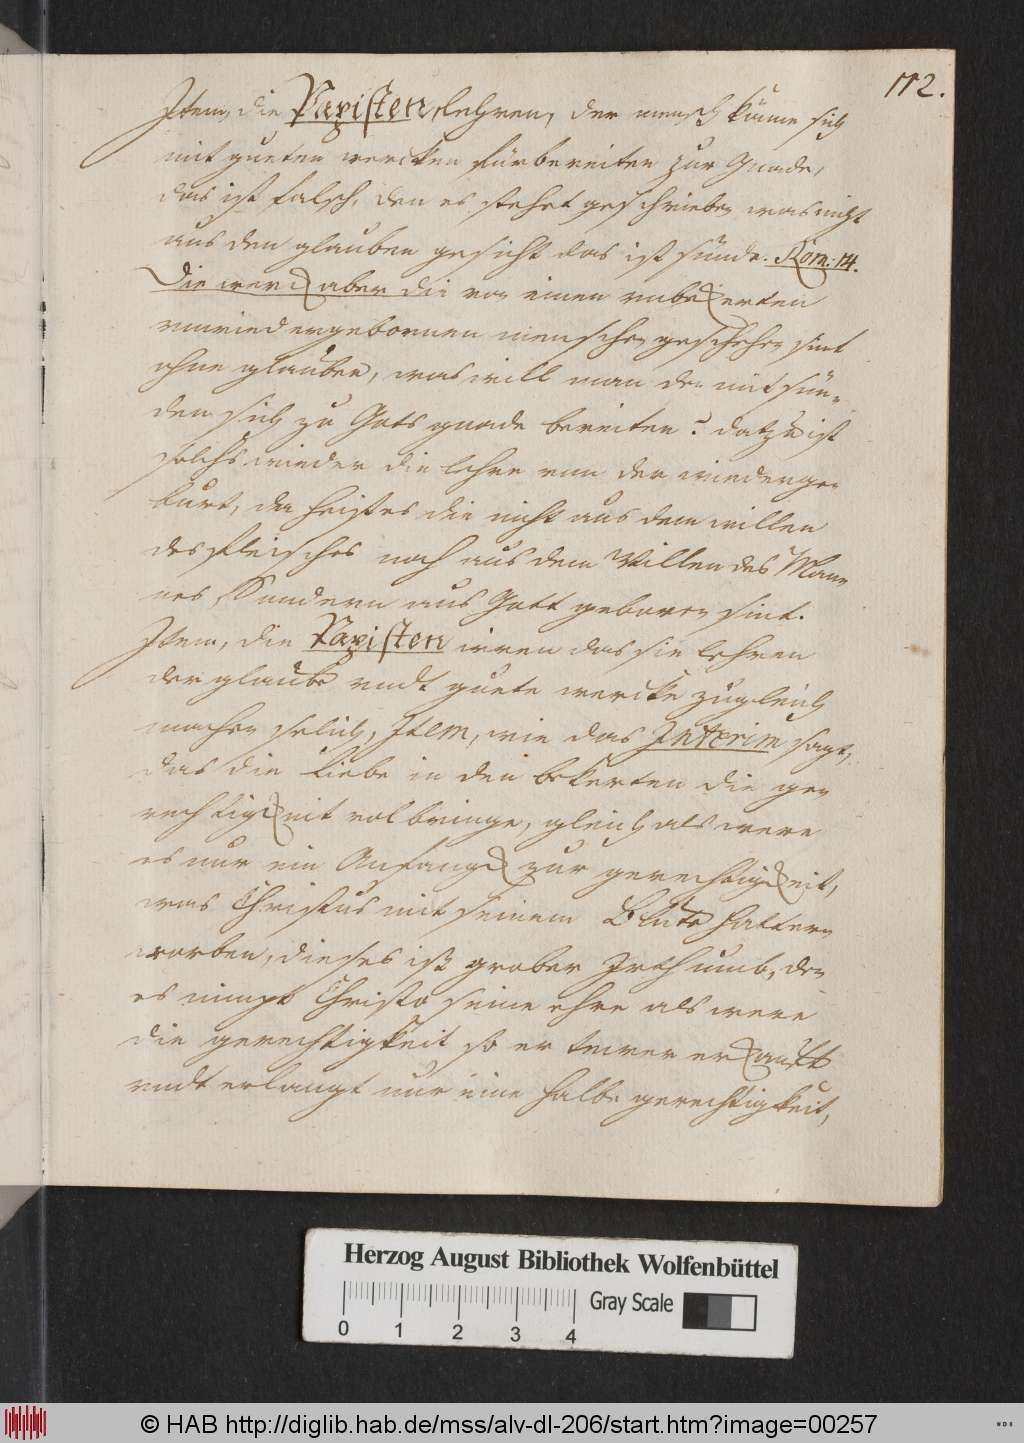 112.
Item, die Papisten, lehren, der mensch könne sich
mit gueten wercken fürbereiten zur Gnade,
das ist falsch, den es stehet geschrieben was nicht
aus den glauben geschicht das ist sünde. Rom: 14.
Die werck aber die von einen unbekerten
unwiedergebornen menschen geschehen sint
ohne glauben, was will man den mit sün-
den sich zu Gots gnade bereiten? datzu ist
solchs wieder die lehre von der wiederge-
burt, da heist es die nicht aus dem willen
des fleisches noch aus dem Willen des Man-
nes, Sondern aus Gott geboren sint.
Item, die Papisten irren das sie lehren
der glaube undt guete wercke zugleich
machen selich, Item, wie das Interim sagt,
das die Liebe in den bekerten die ge-
rechtigkeit volbringe, gleich als were
es nur ein Anfangk zur gerechtigkeit,
was Christus mit seinem Blute hatt er-
worben, dieses ist grober Irthumb, den
es nimpt Christo seine ehre als were
die gerechtigkeit so er tewer erkaufft
undt erlangt nur eine halbe gerechtigkeit,
Herzog August Bibliothek Wolfenbüttel
0 1 2 3 4
Gray Scale
© HAB http://diglib.hab.de/mss/alv-dl-206/start.htm?image=00257